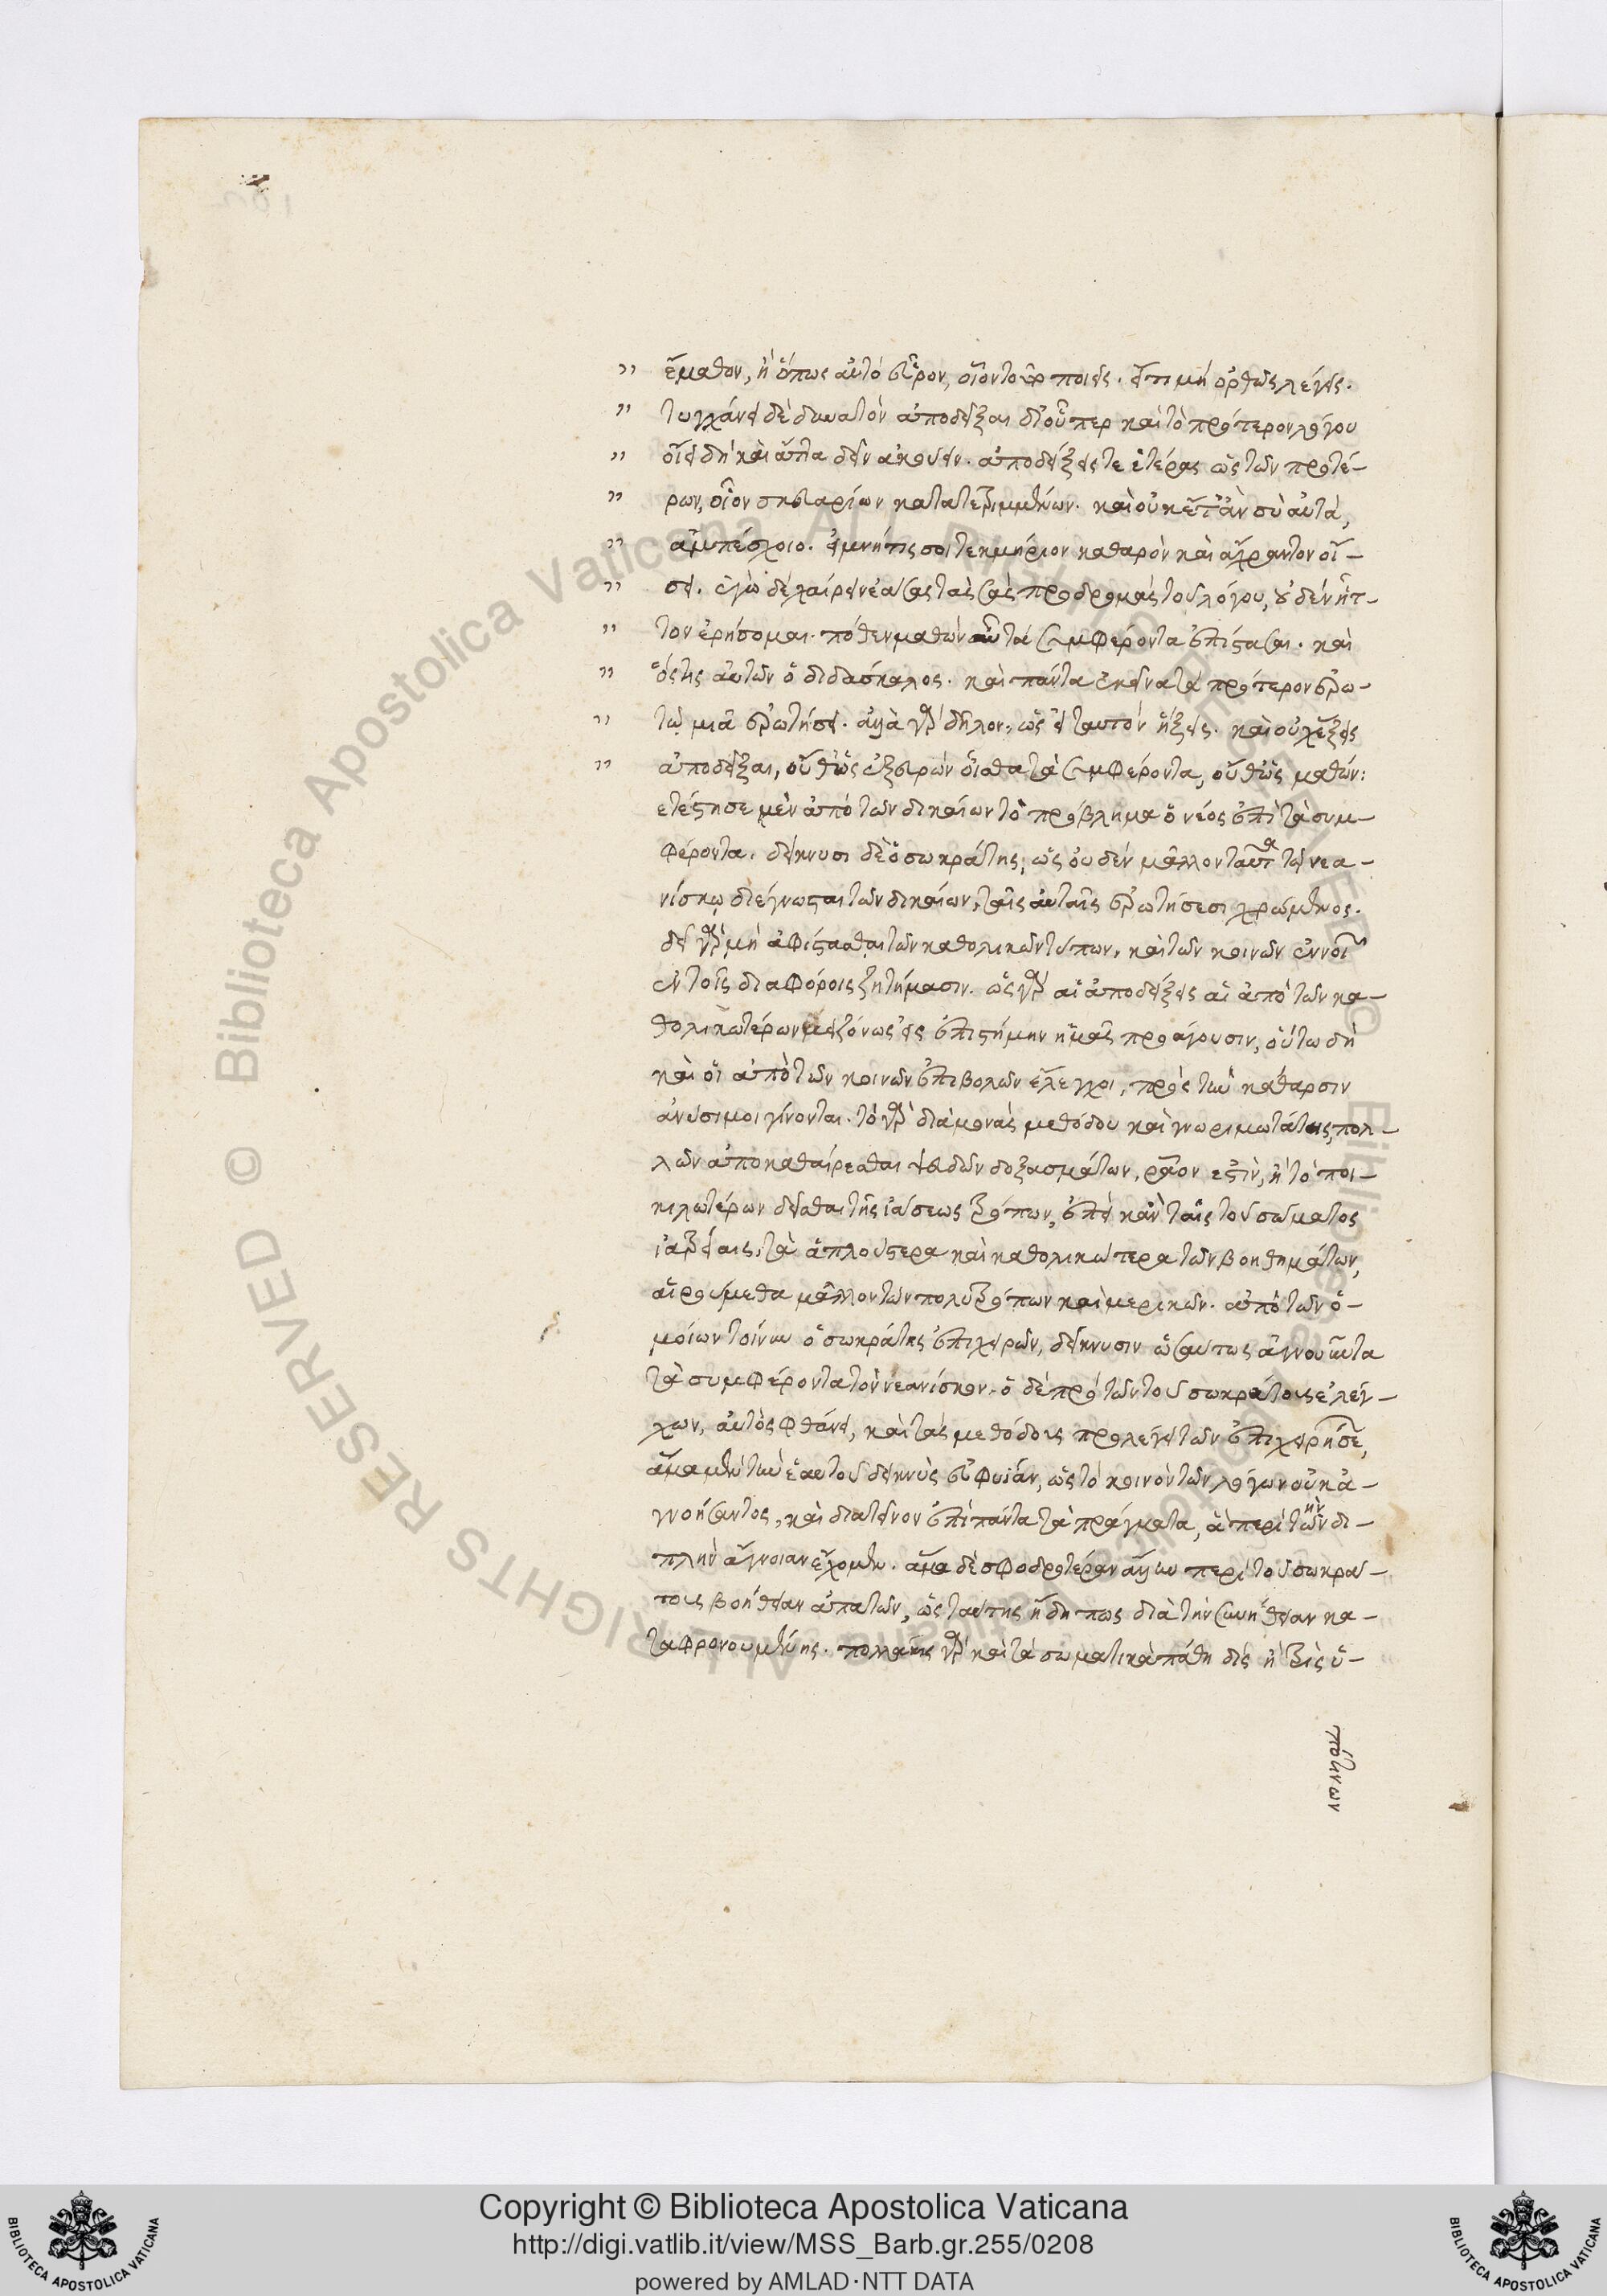 ἔμαθον, ἢ ὅπως αὐτὸ εὗρον, οἷον τοῦτο ποιεῖς. εἴ τι μὴ ὀρθῶς λέγεις.
τυγχάνει δὲ δυνατὸν ἀποδεῖξαι δι' οὗπερ καὶ τὸ πρότερον λόγου
οἴει δὴ καινὰ ἄττα δεῖν ἀκούειν. ἀποδείξεις τε ἑτέρας ὡς τῶν προτέ-
ρων, οἷον σκευαρίων κατατετριμμένων. καὶ οὐκέτ' ἂν σὺ αὐτὰ,
ἀμπέσχοιο. εἰ μή τις σοι τεκμήριον καθαρὸν καὶ ἄχραντον οἴ-
σει. ἐγὼ δὲ χαίρειν ἐάσας τὰς σὰς προδρομὰς τοῦ λόγου, οὐδὲν ἧτ-
τον ἐρήσομαι. πόθεν μαθὼν αὖ τὰ συμφέροντα ἐπίστασαι. καὶ
ὅστις αὐτῶν ὁ διδάσκαλος. καὶ πάντα ἐκεῖνα τὰ πρότερον ἐρω-
τῶ μιᾷ ἐρωτήσει. ἀλλὰ γὰρ δῆλον, ὡς εἰς ταυτὸν ἥξεις. καὶ οὐχ ἕξεις
ἀποδεῖξαι, οὔθ' ὡς ἐξευρὼν οἶσθα τὰ συμφέροντα, οὔθ' ὡς μαθών:
μὲν ἀπὸ τῶν δικαίων τὸ πρόβλημα ὁ νέος ἐπὶ τὰ συμ-
φέροντα. δείκνυσι δὲ ὁ σωκράτης, ὡς οὐδὲν μᾶλλον ταῦτα τῷ νεα-
νίσκῳ διέγνωσται τῶν δικαίων, ταῖς αὐταῖς ἐρωτήσεσι χρώμενος.
δεῖ γὰρ μὴ ἀφίστασθαι τῶν καθολικῶν τύπων, καὶ τῶν κοινῶν ἐννοιῶν
ἐν τοῖς διαφόροις ζητήμασιν. ὡς γὰρ αἱ ἀποδείξεις αἱ ἀπὸ τῶν κα-
θολικωτέρων μειζόνως εἰς ἐπιστήμην ἡμᾶς προάγουσιν, οὕτω δὴ
καὶ οἱ ἀπὸ τῶν κοινῶν ἐπιβολῶν ἔλεγχοι, πρὸς τὴν κάθαρσιν
ἀνύσιμοι γίνονται. τὸ γὰρ διὰ μονὰς μεθόδου καὶ γνωριμωτάτης, πολ-
λῶν ἀποκαθαίρεσθαι ψευδῶν δοξασμάτων, ῥᾷον ἐστὶν, ἢ τὸ ποι-
κιλωτέρων δεῖσθαι τῆς ἰάσεως τρόπων, ἐπεὶ κἂν ταῖς τοῦ σώματος
ἰατρείαις, τὰ ἁπλούστερα καὶ καθολικώτερα τῶν βοηθημάτων,
αἱρούμεθα μᾶλλον τῶν πολυτρόπων καὶ μερικῶν. ἀπὸ τῶν ὁ-
μοίων τοίνυν ὁ σωκράτης ἐπιχειρῶν, δείκνυσιν ὡσαύτως ἀγνοοῦντα
τὰ συμφέροντα τὸν νεανίσκον. ὁ δὲ πρὸ τῶν τοῦ σωκράτους ἐλέγ-
χων, αὐτὸς φθάνει, καὶ τὰς μεθόδους προλέγει τῶν ἐπιχειρήσεων,
ἅμα μὲν τὴν ἑαυτοῦ δεικνὺς εὐφυΐαν, ὡς τὸ κοινὸν τῶν λόγων οὐκ ἀ-
γνοήσαντος, καὶ διατεῖνον ἐπὶ πάντα τὰ πράγματα, ἃ περὶ τὴν δι-
πλῆν ἄγνοιαν ἔχομεν. ἅμα δὲ σφοδροτέραν ἄλλην περὶ τοῦ σωκρά-
τους βοήθειαν ἀπαιτῶν, ὡς ταύτης ἤδη πως διὰ τὴν συνήθειαν κα-
ταφρονουμένης. πολλάκις γὰρ καὶ τὰ σωματικὰ πάθη δὶς ἢ τρὶς ὑ-
Copyright © Biblioteca Apostolica Vaticana
http://digi.vatlib.it/view/MSS_Barb.gr.255/0208
powered by AMLAD·NTT DATA